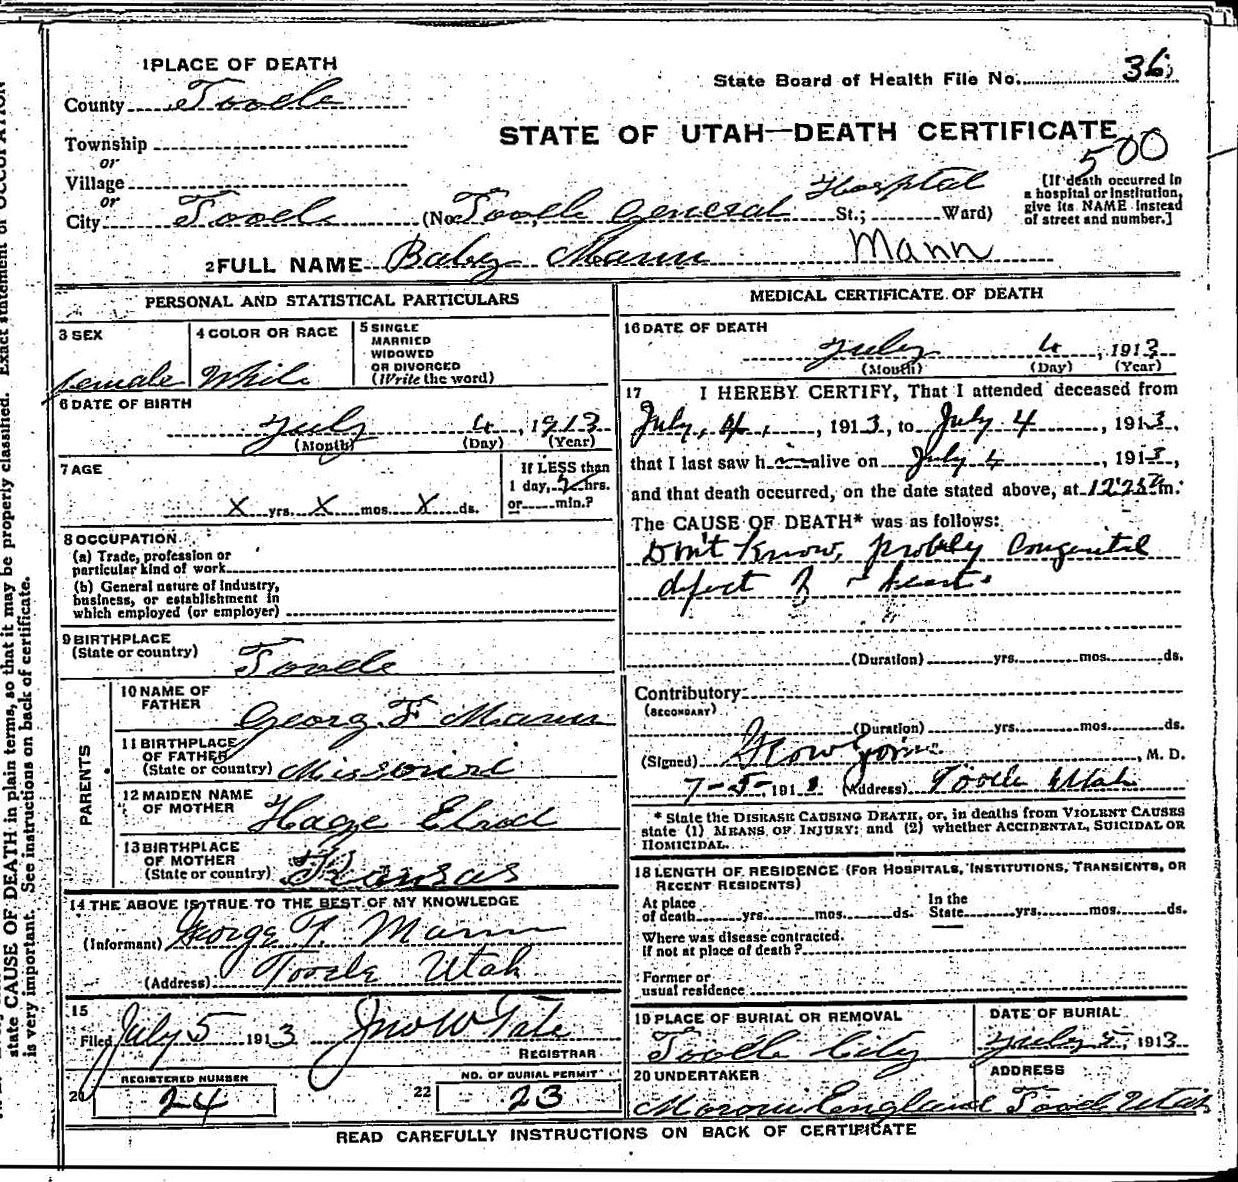 1 PLACE OF DEATH
State Board of Health File No. 36
County Tooele
STATE OF UTAH—DEATH CERTIFICATE
500
Township
or
Village
or
City Tooele (No. Tooele General Hospital St.; Ward)
[If death occurred in
a hospital or institution,
give its NAME instead
of street and number.]
2 FULL NAME Baby Mann Mann
PERSONAL AND STATISTICAL PARTICULARS
3 SEX
female
4 COLOR OR RACE
White
5 SINGLE
MARRIED
WIDOWED
OR DIVORCED
(Write the word)
6 DATE OF BIRTH
July 4, 1913
(Month) (Day) (Year)
7 AGE
X yrs. X mos. X ds.
If LESS than
1 day, hrs.
or min.?
8 OCCUPATION
(a) Trade, profession or
particular kind of work
(b) General nature of industry,
business, or establishment in
which employed (or employer)
9 BIRTHPLACE
(State or country)
Tooele
PARENTS
10 NAME OF
FATHER
Georg. F Mann
11 BIRTHPLACE
OF FATHER
(State or country) Missouri
12 MAIDEN NAME
OF MOTHER
Hage Elrod
13 BIRTHPLACE
OF MOTHER
(State or country) Kansas
14 THE ABOVE IS TRUE TO THE BEST OF MY KNOWLEDGE
(Informant) George F. Mann
(Address) Tooele Utah
15
Filed July 5 1913 Jno W Tate
REGISTRAR
21 REGISTERED NUMBER
24
22 NO. OF BURIAL PERMIT
23
MEDICAL CERTIFICATE OF DEATH
16 DATE OF DEATH
July 4, 1913
(Month) (Day) (Year)
17 I HEREBY CERTIFY, That I attended deceased from
July 4, 1913, to July 4, 1913,
that I last saw h alive on July 4, 1913,
and that death occurred, on the date stated above, at 12:25 m.
The CAUSE OF DEATH* was as follows:
Don't Know, probly Congenitil
defect of heart.
(Duration) yrs. mos. ds.
Contributory
(SECONDARY)
(Duration) yrs. mos. ds.
(Signed) , M. D.
7-5-, 191 (Address) Tooele Utah
* State the DISEASE CAUSING DEATH, or, in deaths from VIOLENT CAUSES
state (1) MEANS OF INJURY; and (2) whether ACCIDENTAL, SUICIDAL OR
HOMICIDAL.
18 LENGTH OF RESIDENCE (FOR HOSPITALS, INSTITUTIONS, TRANSIENTS, OR
RECENT RESIDENTS)
At place
of death yrs. mos. ds.
In the
State yrs. mos. ds.
Where was disease contracted.
if not at place of death?
Former or
usual residence
19 PLACE OF BURIAL OR REMOVAL
Tooele City
DATE OF BURIAL
July 5, 1913
20 UNDERTAKER
Moroni England
ADDRESS
Tooele Utah
READ CAREFULLY INSTRUCTIONS ON BACK OF CERTIFICATE
state CAUSE OF DEATH in plain terms, so that it may be properly classified. Exact statement of OCCUPATION
is very important. See instructions on back of certificate.